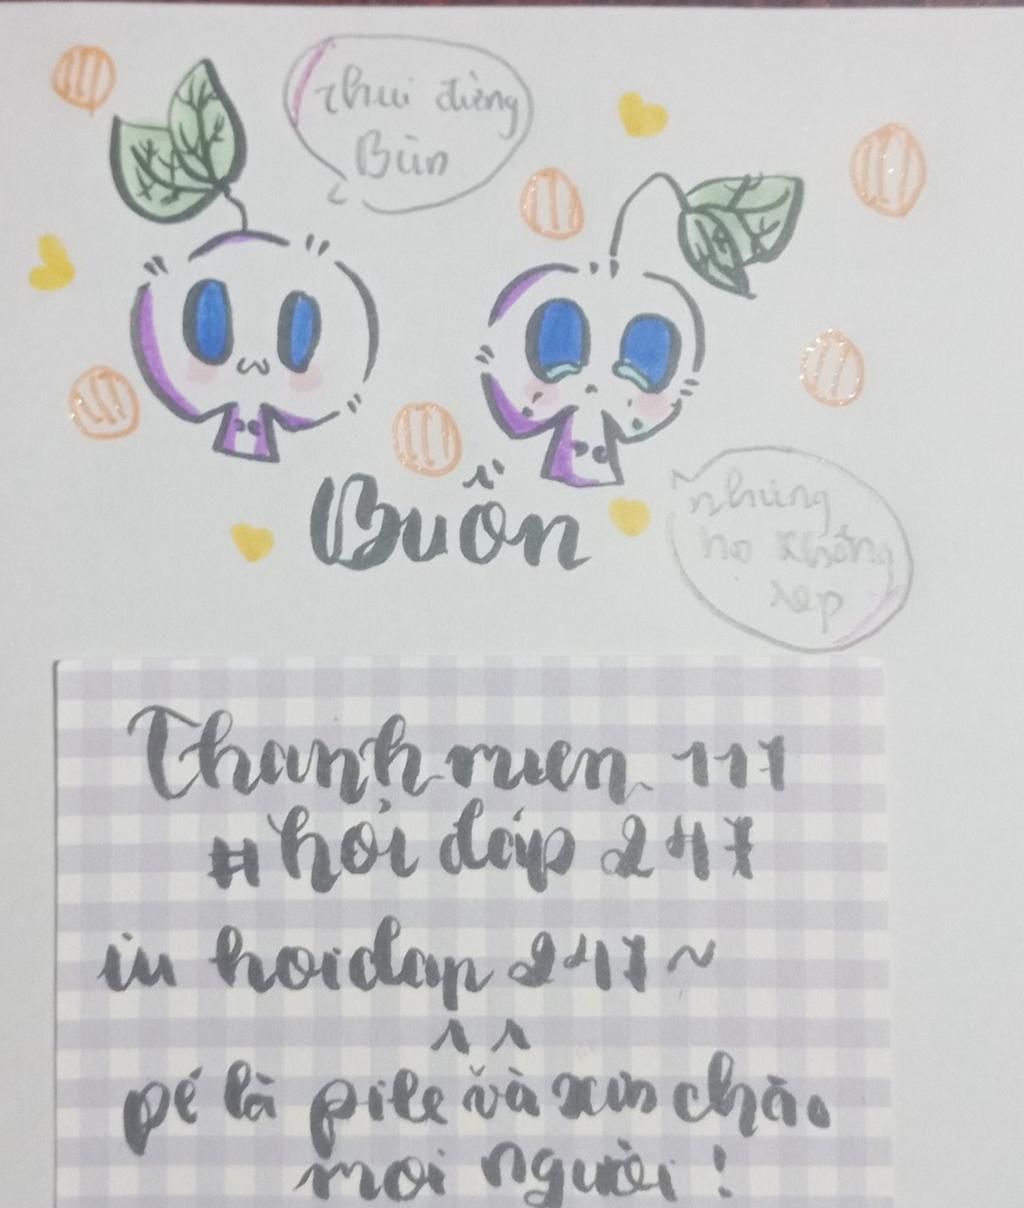 thui đừng
Bùn
Buồn
nhưng
họ không
rep
Thanhruen 117
#hỏi đáp 247
in hoidap 247~
^ ^
pé là pile và xin chào
mọi người!